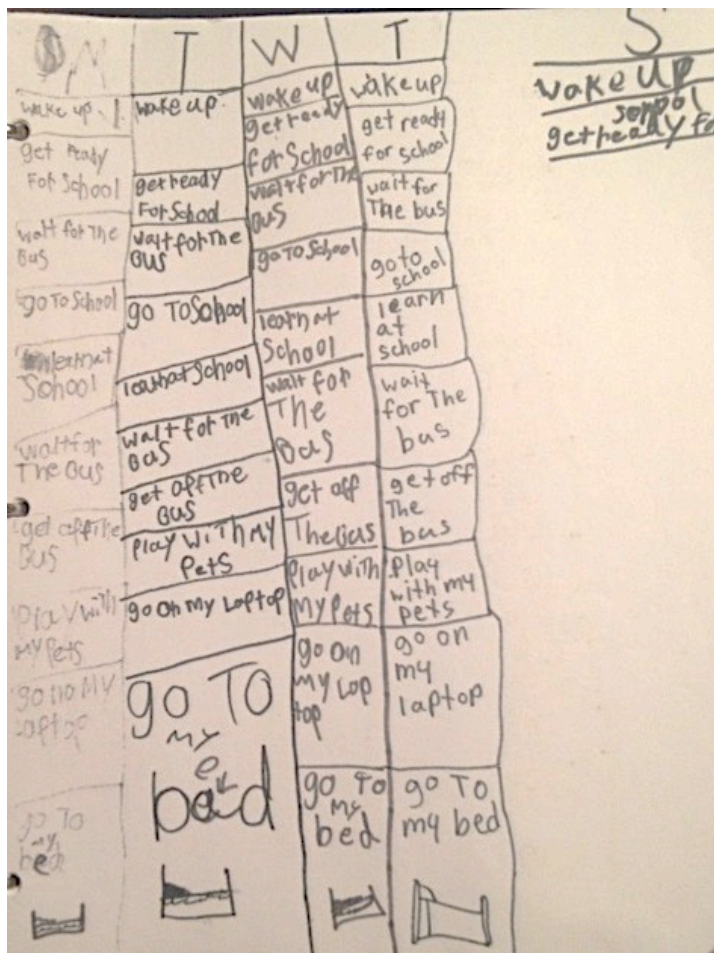 M
wake up.
get ready
For School
wait for The
Bus
go To School
learn at
School
wait for
The Bus
get off The
Bus
Play with
My Pets
go no MY
Laptop
go To
my
bed
T
wake up.
get ready
For School
wait for The
Bus
go To School
learn at School
wait for The
Bus
get off The
Bus
Play with My
Pets
go on my Laptop
go To
my
e
bad
W
wake up
get ready
for School
wait for The
Bus
go To School
learn at
School
wait for
The
Bus
get off
The Bus
Play with
My Pets
go on
my Lap
top
go To
my
bed
T
wake up
get ready
for school
wait for
The bus
go to
school
learn
at
school
wait
for The
bus
get off
The
bus
Play
with my
pets
go on
my
laptop
go To
my bed
S
wake up
school
get ready fo